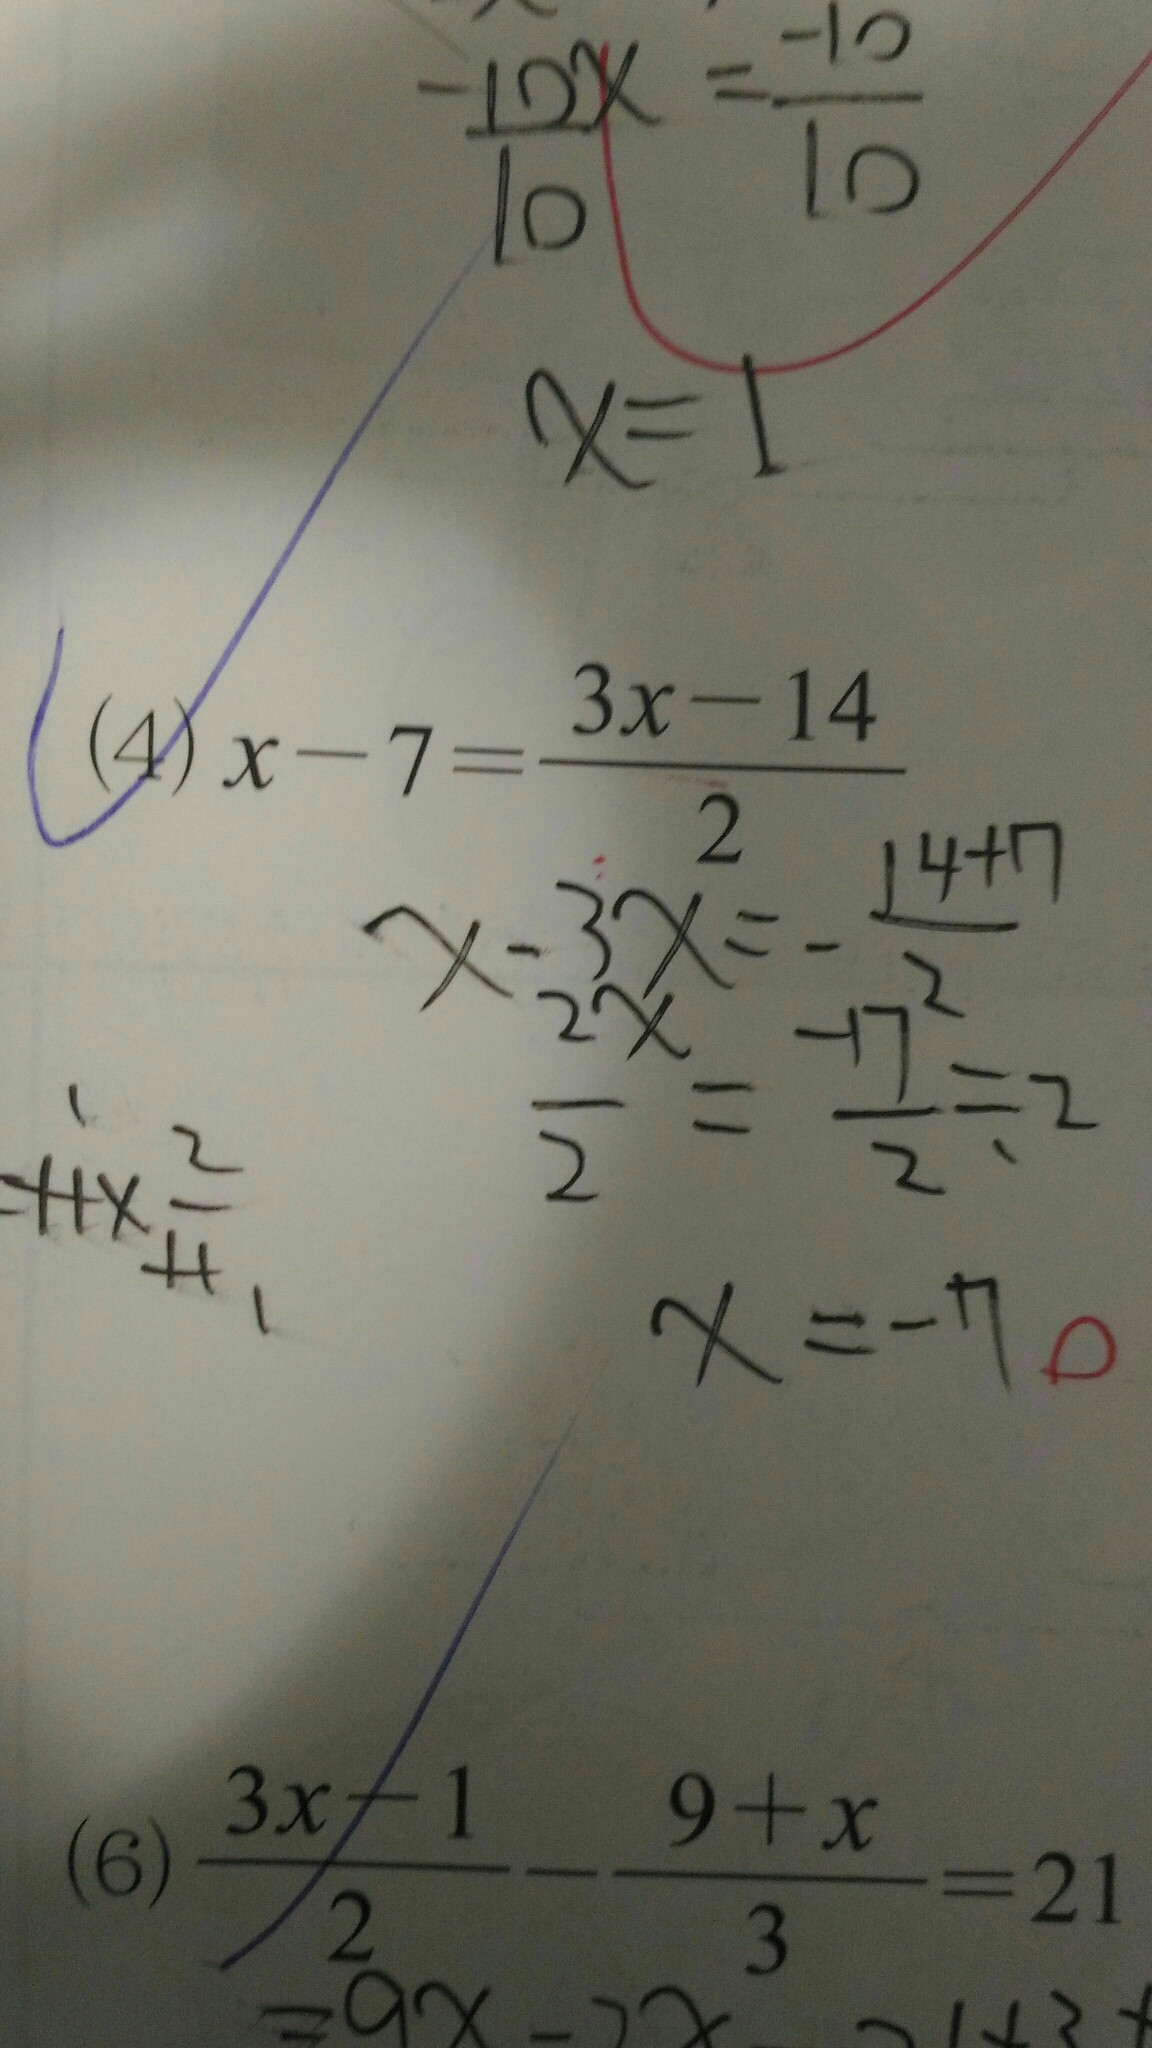 -10x/10 = -10/10
x = 1
(4) x - 7 = (3x - 14)/2
x - 3x = - (14+7)/2
2x/2 = -7/2 = 2
-11x 2/11
1 1
x = -7 0
(6) (3x - 1)/2 - (9 + x)/3 = 21
= 9x - 2x